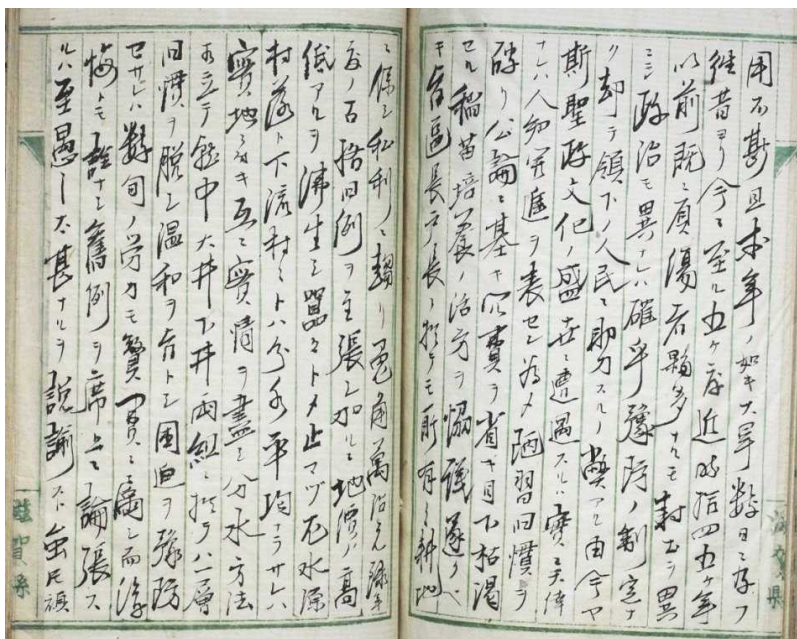 困不斟且本年ノ如キ大旱数日ニ及フ
往昔ヨリ今ニ至ル五ヶ度近頃拾四五ヶ年
以前既ニ負傷者夥多ナルモ封土ヲ異
ニシ政治モ異ナレハ確乎豫防ノ制定ナ
ク却テ領下ノ人民ニ助力スルノ弊アル由今ヤ
斯聖政文化ノ盛世ニ遭遇スルハ實ニ天倖
ナレハ人知開進ヲ表セン為メ陋習旧慣ヲ
破リ公論ニ基キ冗費ヲ省キ目下枯渇
セル稲苗培養ノ活方ヲ協議遂ク
キ各区長戸長ニ於テモ所有之耕地
ニ係ル私利ニ趨リ兎角萬治元禄年
度ノ古格旧例ヲ主張シ加ルニ地濱ノ高
低アルヲ沸生シ囂々トメ止マツ尤水源
村落ト下流村ミトハ分水平均ナラサレハ
實地ニ就キ互ニ實情ヲ盡シ分水方法
相立テ就中大井下井両組ニ於テハ一層
旧慣ヲ脱シ温和ヲ旨トシ困迫ヲ豫防
セサレハ数旬ノ労力モ一簣ニ闕シ而後
悔トモ詮ナシ舊例ヲ席上ニ論張ス
ルハ至愚ノ太甚ナルヲ説諭スト虽氏頑
滋賀県
滋賀縣